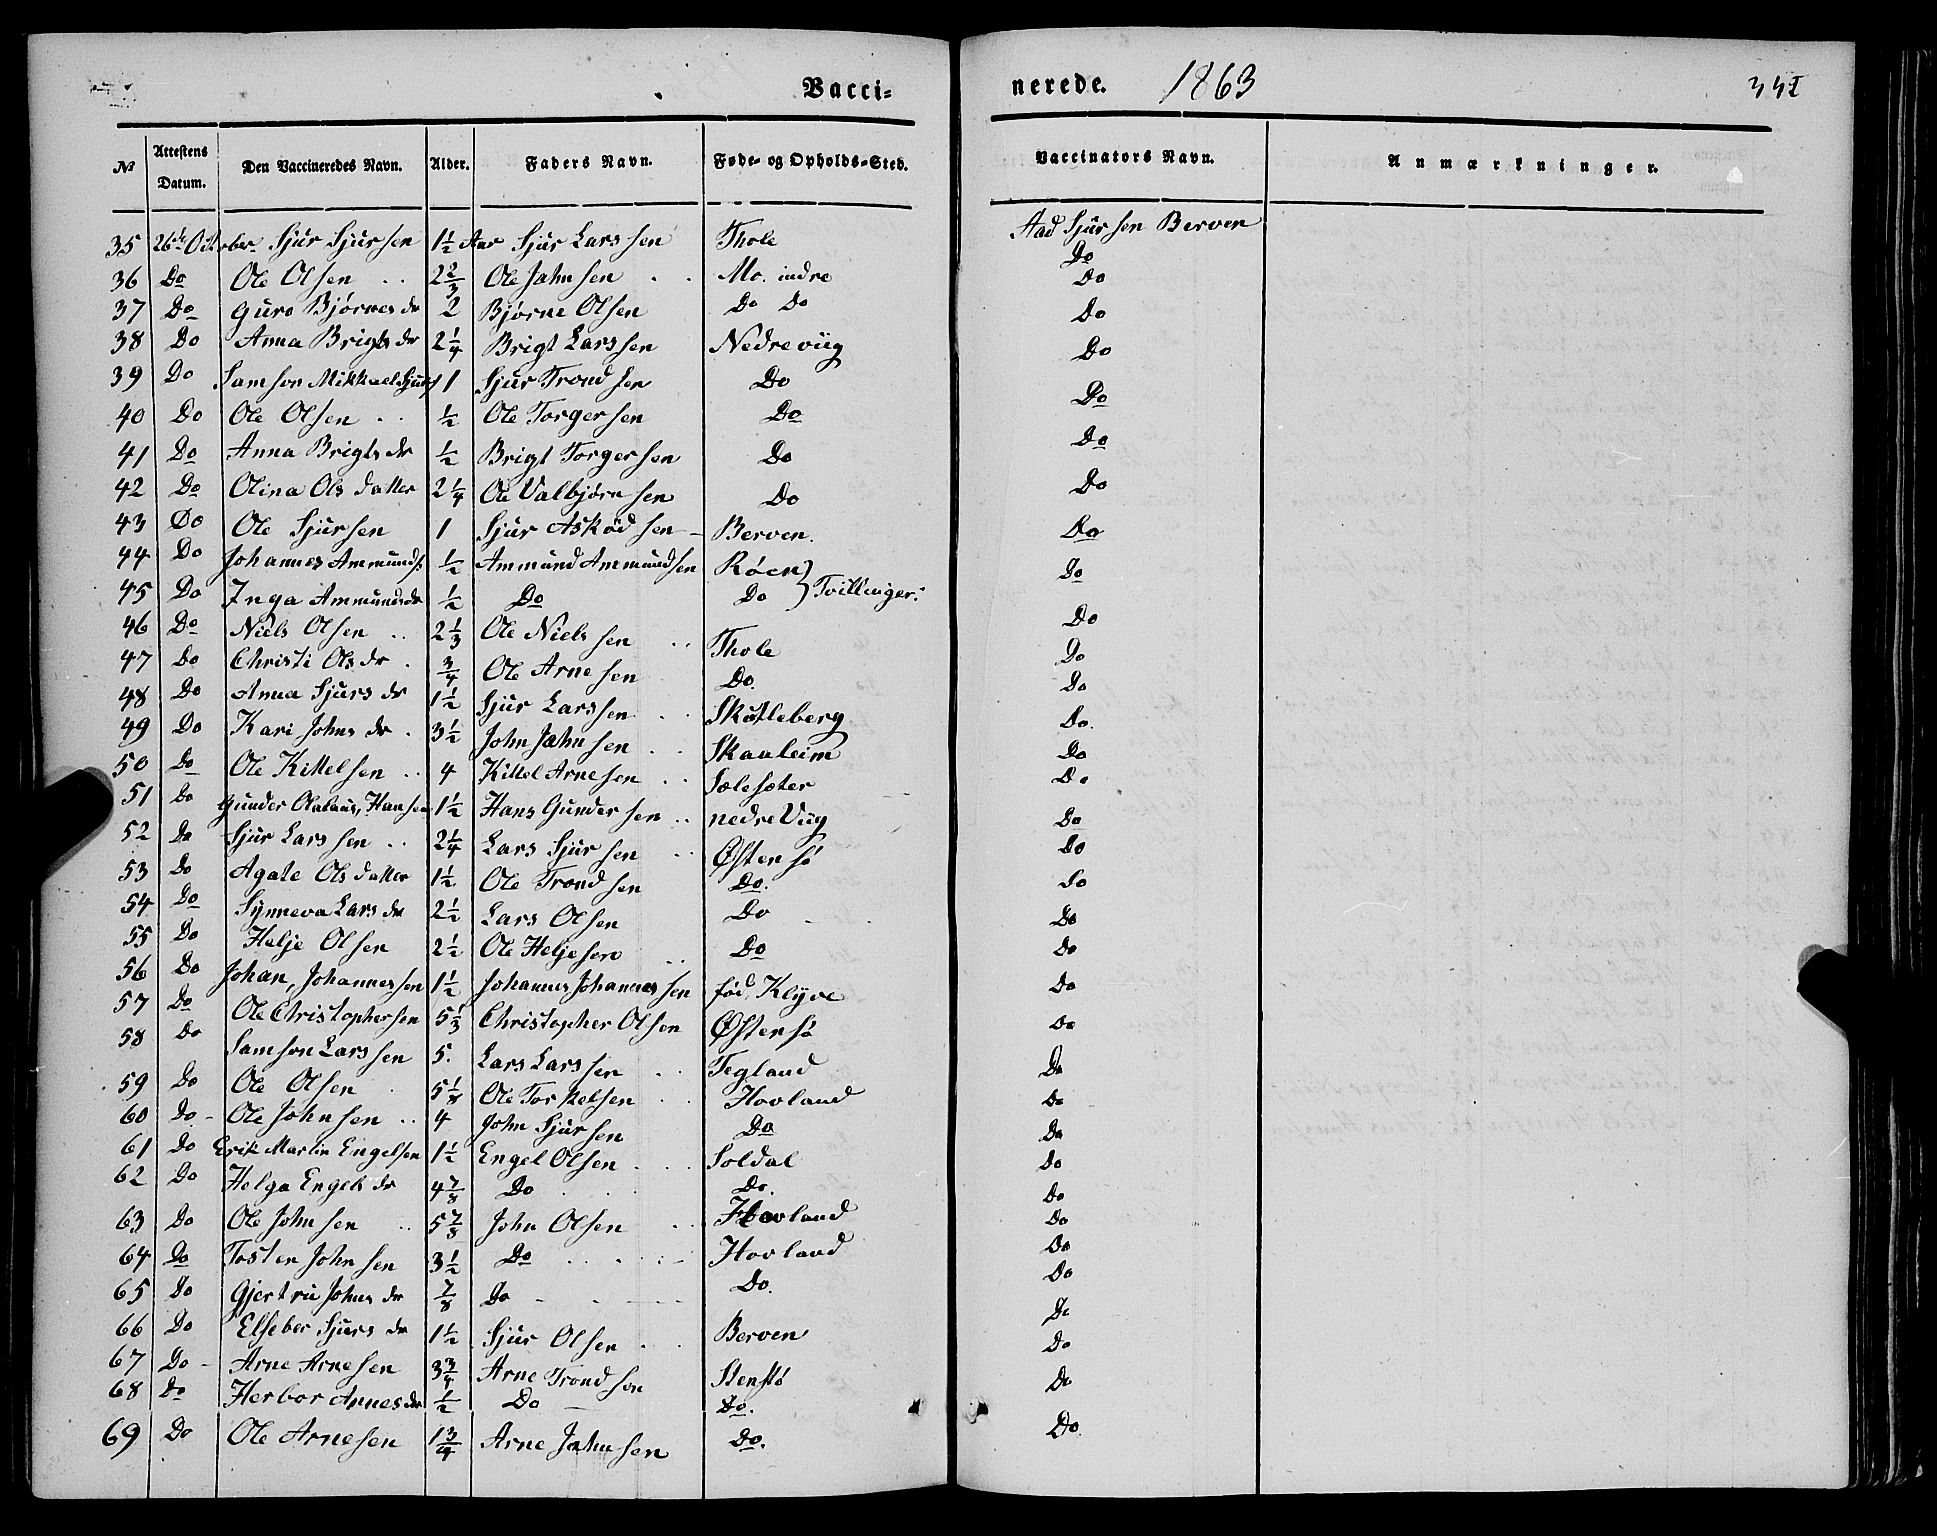 Vacci- nerede. 1863 341
No Attestens Datum. Den Vaccineredes Navn. Alder. Faders Navn. Føde- og Opholds-Sted. Vaccinators Navn. Anmærkninger.
35 26de October Sjur Sjursen 1½ Aar Sjur Larssen Thole Aad Sjursen Berven
36 Do Ole Olsen .. 2⅔ Ole Johnsen . . Mo. indre Do Do
37 Do Guro Bjørnes dr 2 Bjørne Olsen Do Do Do
38 Do Anna Brigts dr 2¼ Brigt Larssen Nedreviig Do
39 Do Samson Mikkael Sjurs 1 Sjur Trondsen Do Do
40 Do Ole Olsen .. ½ Ole Torgersen Do Do
41 Do Anna Brigts dr ½ Brigt Torgersen Do Do
42 Do Olina Ols datter 2¼ Ole Valbjørnsen Do Do
43 Do Ole Sjursen 1 Sjur Askødsen - Berven. Do
44 Do Johannes Ammunds ½ Ammund Ammundsen Røen } Tvillinger: Do
45 Do Inga Ammunds dr ½ Do Do Do
46 Do Niels Olsen .. 2⅓ Ole Nielsen .. Thole Do
47 Do Christi Ols dr . ¾ Ole Arnesen Do. Do
48 Do Anna Sjurs dr 1½ Sjur Larssen . . Skutleberg Do.
49 Do Kari Johns dr . 3½ John Johnsen . . Skaaleim Do
50 Do Ole Kittelsen .. 4 Kittel Arnesen . . Solesæter Do
51 Do Gunder Olalaus, Hansen 1½ Hans Gundersen .. nedre Viig Do
52 Do Sjur Larssen .. 2¼ Lars Sjursen .. Østensø Do
53 Do Agate Ols datter 1½ Ole Trondsen Do. Do
54 Do Synneva Lars dr 2½ Lars Olsen Do Do
55 Do Helje Olsen 2½ Ole Heljesen .. Do Do
56 Do Johan, Johannessen 1½ Johannes Johannessen fød, Klyve Do
57 Do Ole Christophersen 5⅓ Christopher Olsen Østensø Do
58 Do Samson Larssen 5. Lars Larssen . . Tegland Do
59 Do Ole Olsen . 5⅛ Ole Torkelsen . . Hovland Do
60 Do - Ole Johnsen .. 4 John Sjursen Do Do
61 Do Erik Martin Engelsen 1½ Engel Olsen . . . Soldal Do
62 Do Helga Engels dr 4⅞ Do . . . Do. Do
63 Do Ole Johnsen .. 5⅞ John Olsen .. Hovland Do
64 Do Tosten Johnsen 3½ Do . . . . Hovland Do
65 Do Gjertru Johns dr ⅞ Do - . - Do. Do
66 Do Elseber Sjurs dr 1½ Sjur Olsen . . Berven Do
67 Do - Arne Arnesen 3¾ Arne Trondsen Stenstø Do
68 Do Herbor Arnes dr ½ Do Do. Do
69 Do Ole Arnesen 1¾ Arne Johnsen Do. Do.